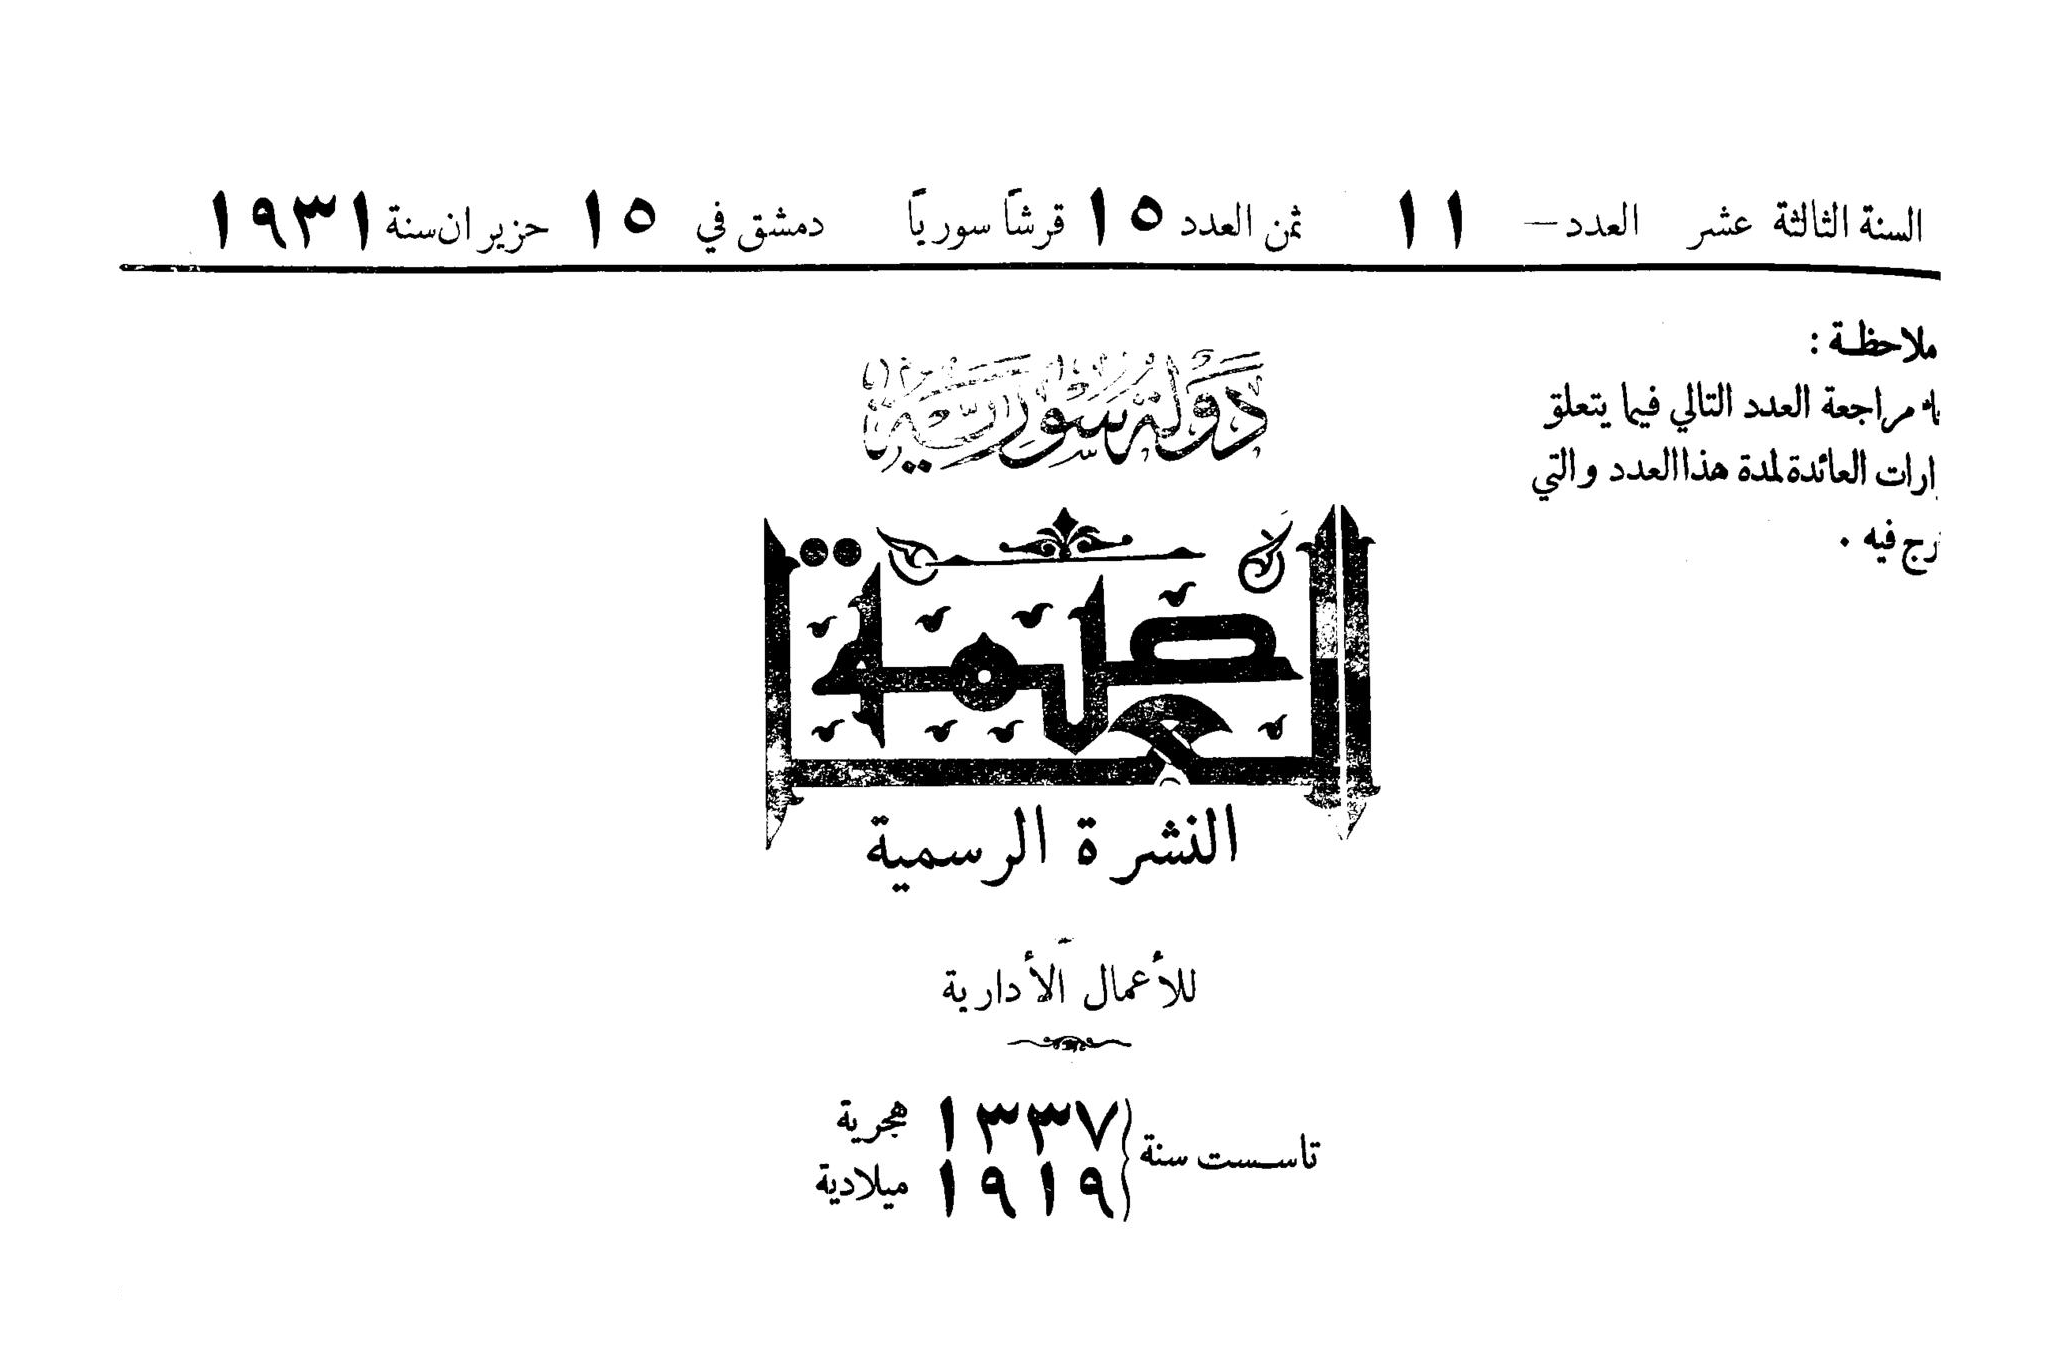 السنة الثالثة عشر العدد — ١١ ثمن العدد ١٥ قرشاً سورياً دمشق في ١٥ حزيران سنة ١٩٣١
ملاحظة :
مراجعة العدد التالي فيما يتعلق
العائدة لمدة هذا العدد والتي
فيه .
دولة سورية
العاصمة
النشرة الرسمية
للأعمال الأدارية
تاسست سنة
١٣٣٧ هجرية
١٩١٩ ميلادية